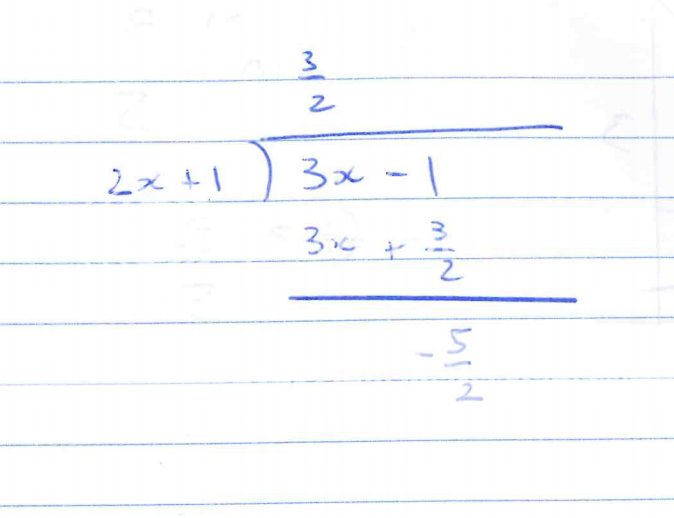 3/2
2x + 1 ) 3x - 1
3x + 3/2
- 5/2